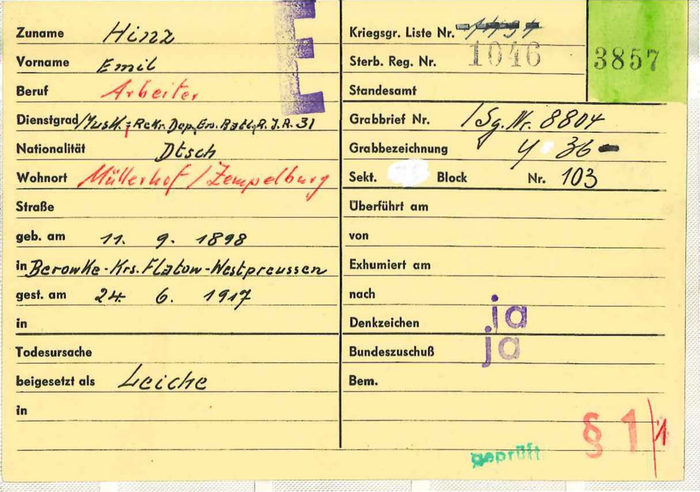 E
Zuname Hinz
Vorname Emil
Beruf Arbeiter
Dienstgrad Musk. Rekr. Dep. Ers. Batl. R.J.R. 31
Nationalität Dtsch
Wohnort Müllerhof/Zempelburg
Straße
geb. am 11. 9. 1898
in Berowke-Krs. Flatow-Westpreussen
gest. am 24. 6. 1917
in
Todesursache
beigesetzt als Leiche
in
Kriegsgr. Liste Nr.
Sterb. Reg. Nr. 1046
3857
Standesamt
Grabbrief Nr. /Sg. Nr. 8804
Grabbezeichnung Y 36
Sekt. Block Nr. 103
Überführt am
von
Exhumiert am
nach
Denkzeichen ja
Bundeszuschuß ja
Bem.
§ 1/1
geprüft